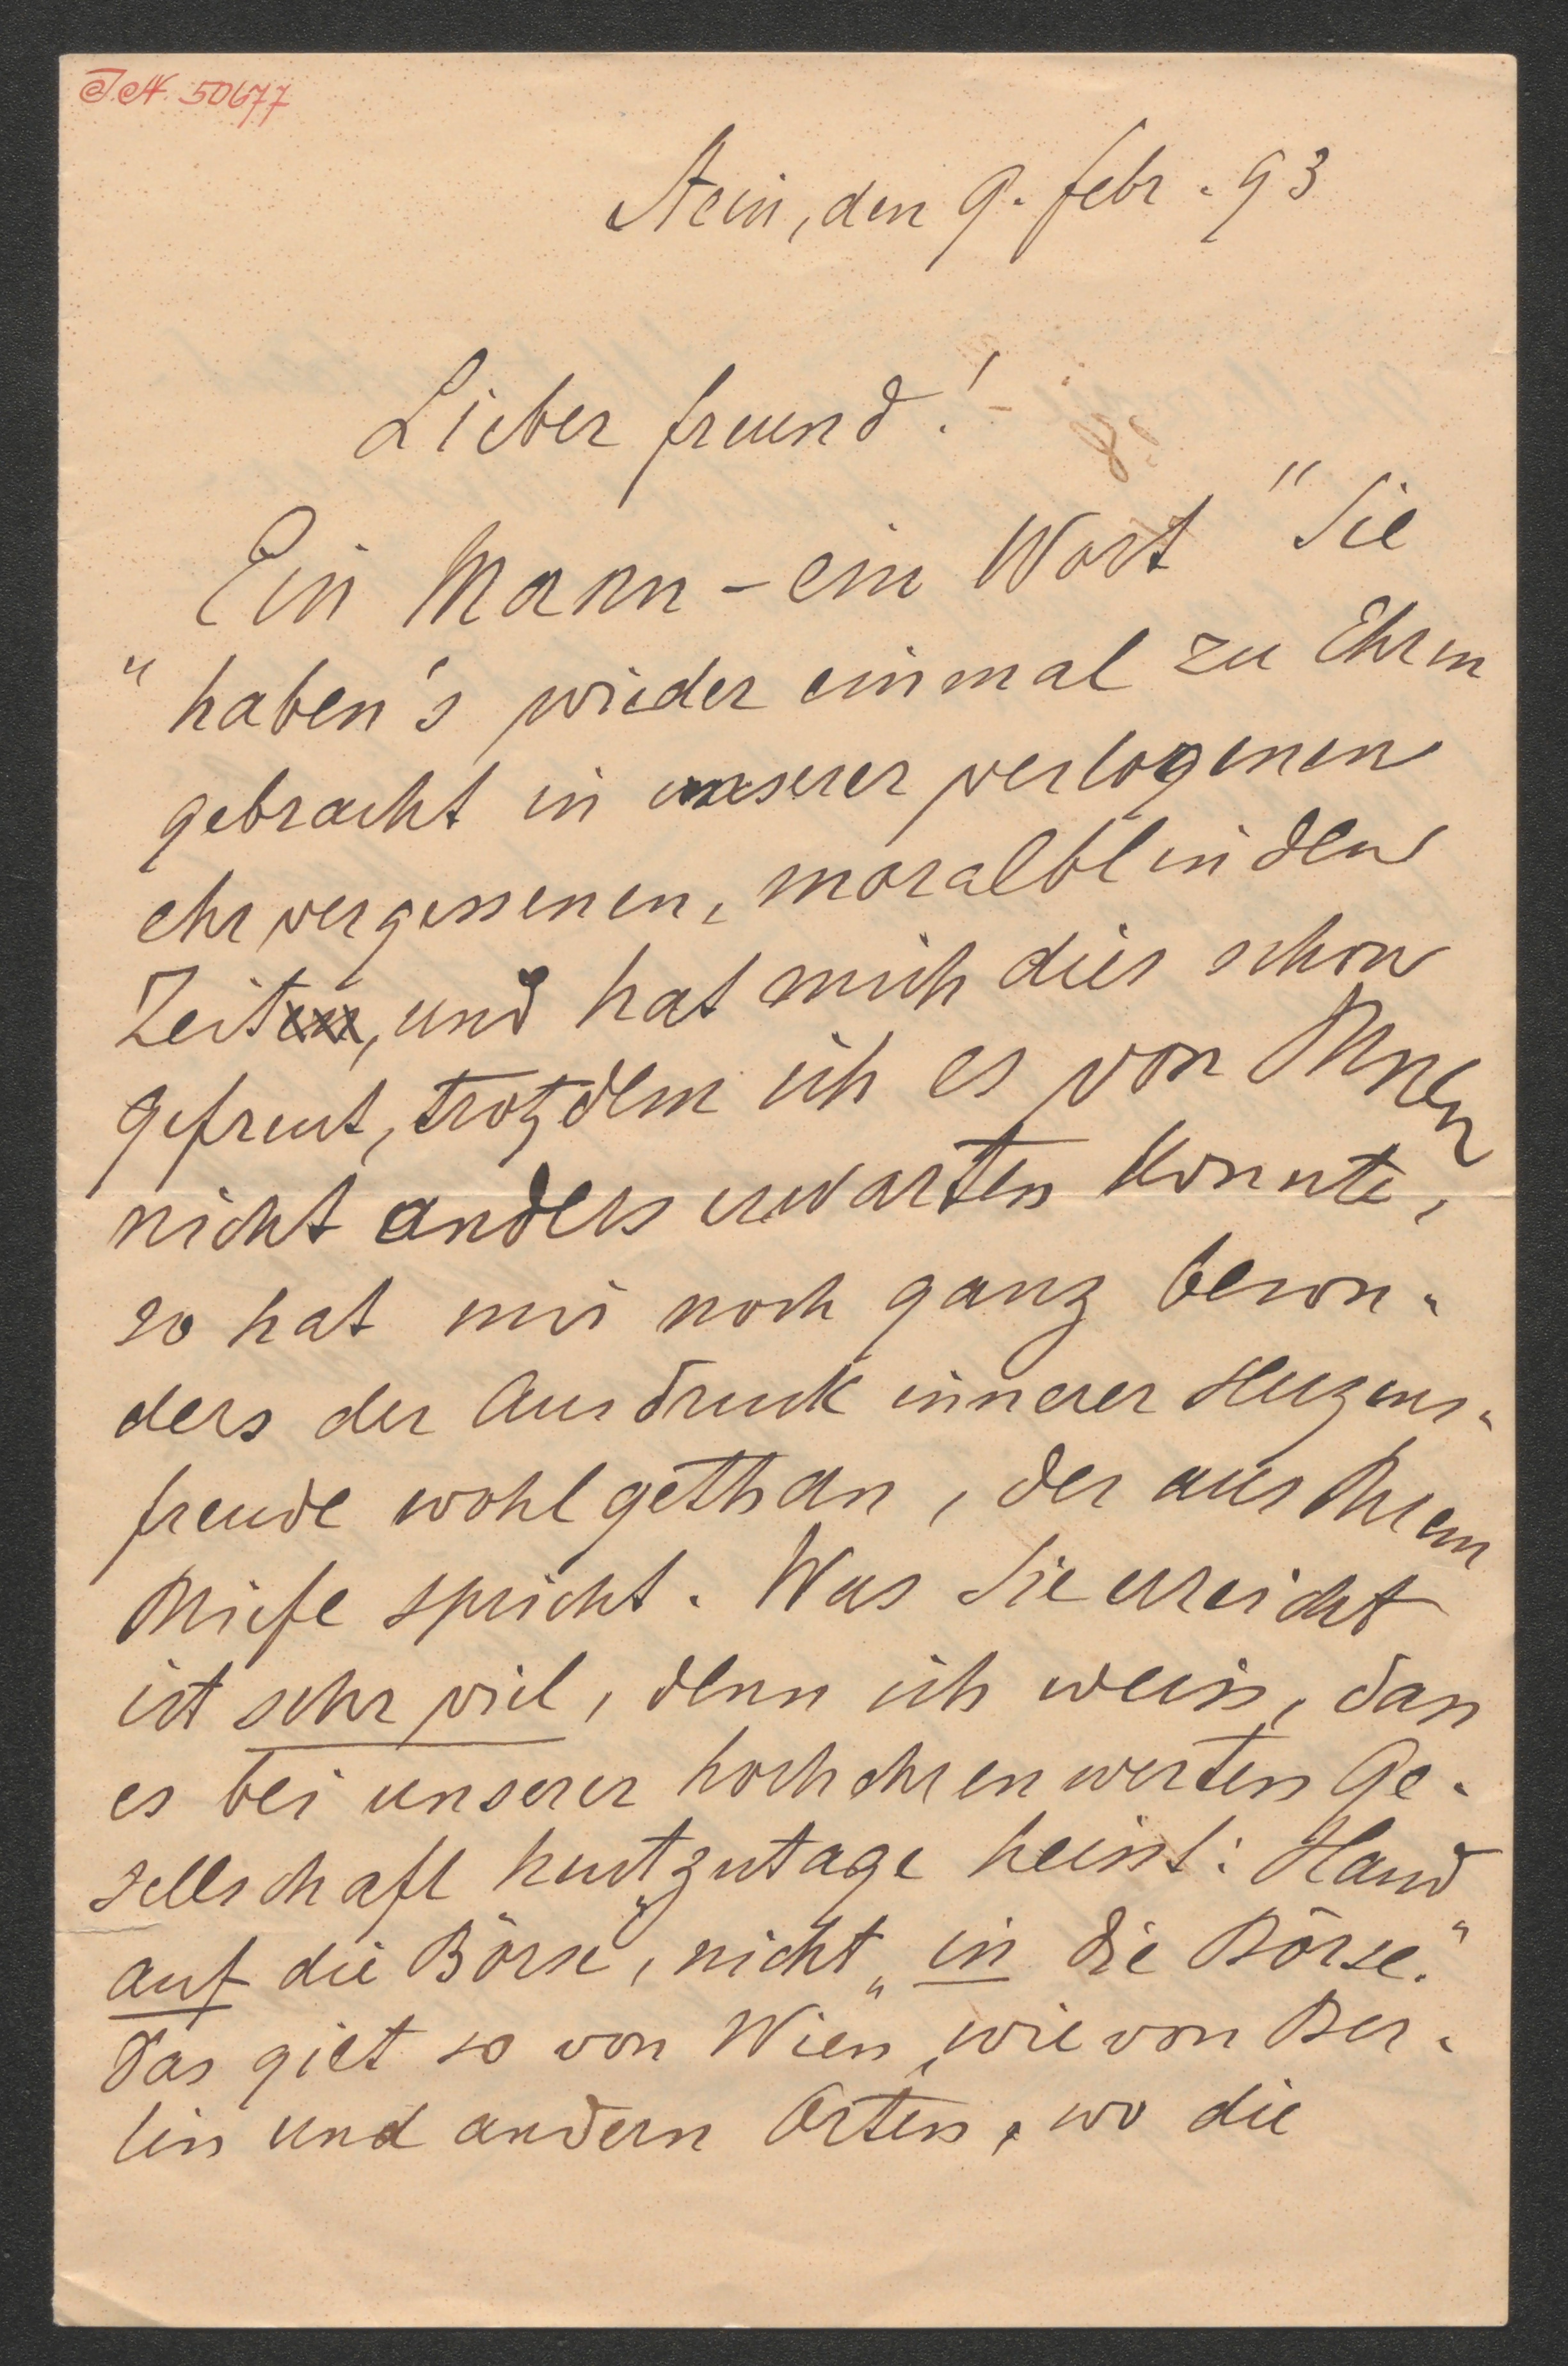 J.N. 50677
Stein, den 9. Febr. 93
Lieber Freund!
Ein Mann – ein Wort" Sie
" haben's wieder einmal zu Ehren
gebracht in unserer verlogenen
ehrvergessenen, moralblinden
Zeiten, und hat mich dies schon
gefreut, trotzdem ich es von Ihnen
nicht anders erwarten konnte,
so hat mir noch ganz beson-
ders der Ausdruck innerer Herzens-
freude wohlgethan, der aus Ihrem
Briefe spricht. Was Sie erreicht
ist sehr viel, denn ich weiss, dass
es bei unserer hochehrenwerten Ge-
sellschaft heutzutage heisst: Hand
„auf die Börse, nicht „in die Börse."
Das gilt so von Wien, wie von Ber-
lin und andern Orten, wo die